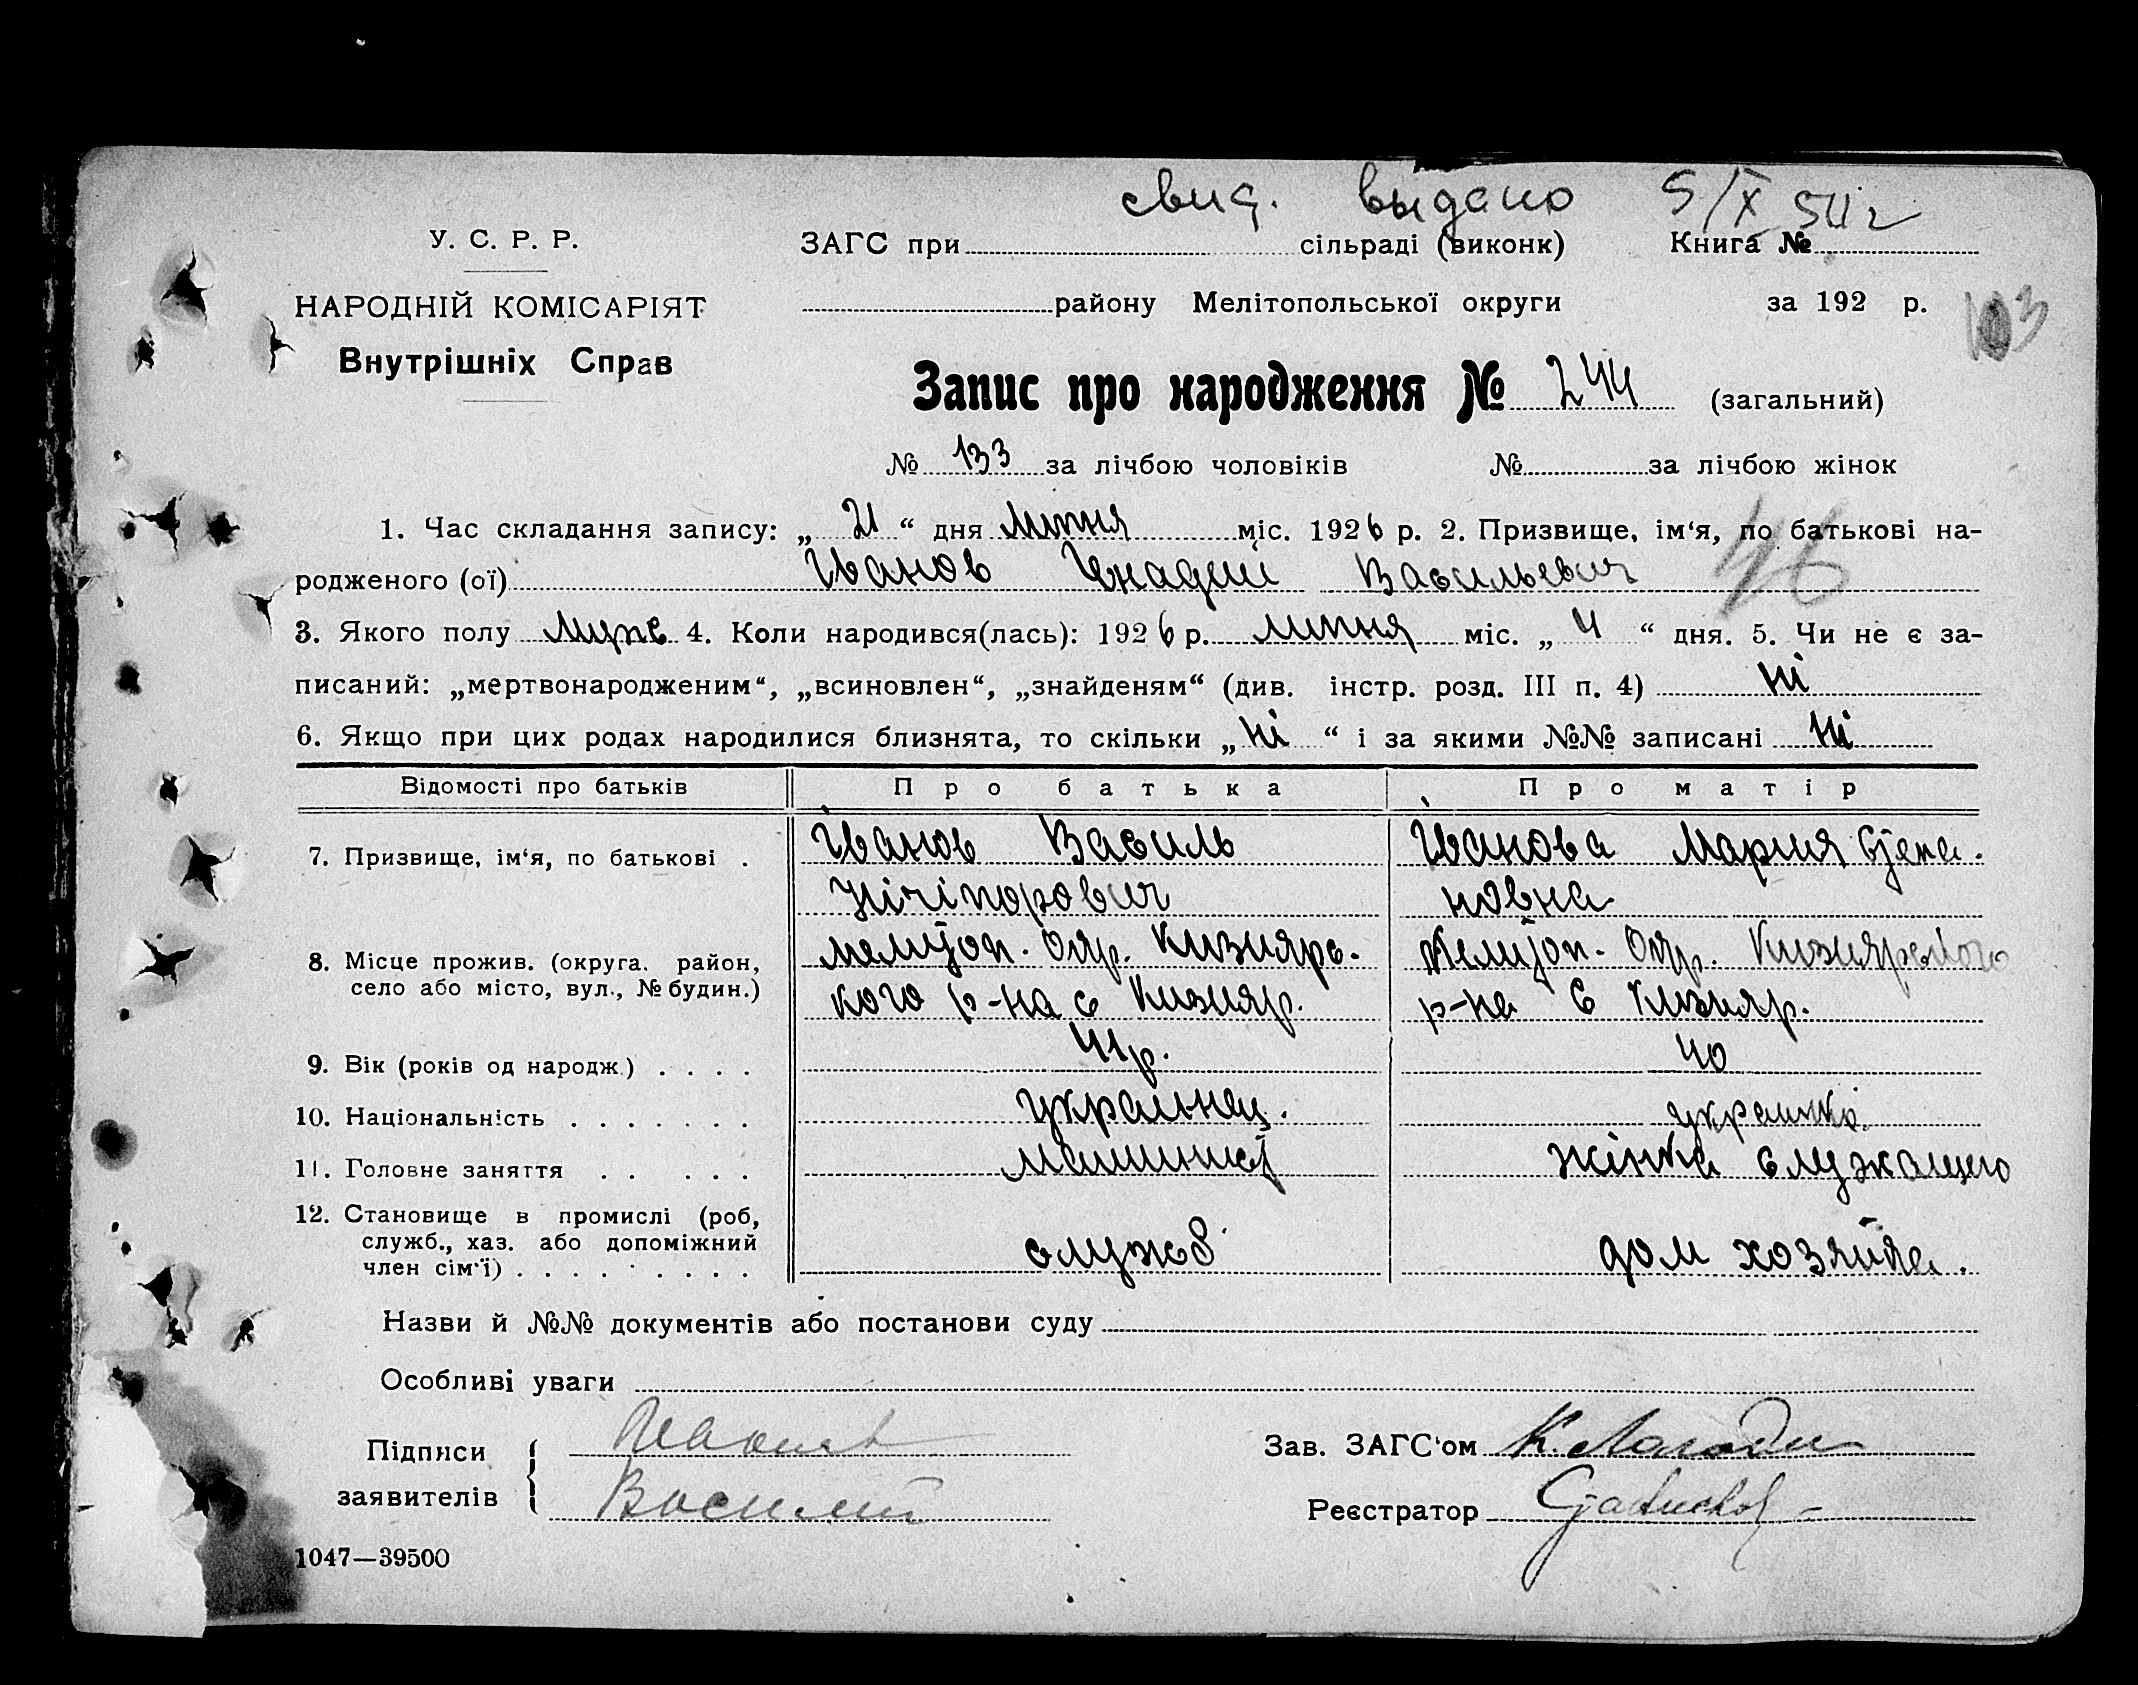 свид. выдано 5/X 54 г
У. С. Р. Р. ЗАГС при сільраді (виконк) Книга №
НАРОДНІЙ КОМІСАРІЯТ району Мелітопольської округи за 192 р. 103
Внутрішніх Справ
Запис про народження № 244 (загальний)
№ 133 за лічбою чоловіків № за лічбою жінок
1. Час складання запису: „ 21 “ дня липня міс. 1926 р. 2. Призвище, ім‘я, по батькові на-
родженого (ої) Іванов Генадий Васильевич 46
3. Якого полу муже 4. Коли народився(лась): 1926 р. липня міс. „ 4 “ дня. 5. Чи не є за-
писаний: „мертвонародженим“, „всиновлен“, „знайденям“ (див. інстр. розд. III п. 4) ні
6. Якщо при цих родах народилися близнята, то скільки „ ні “ і за якими №№ записані ні
Відомості про батьків Про батька Про матір
7. Призвище, ім‘я, по батькові . Іванов Василь Іванова Мария Степа.
Нічіпорович новна
8. Місце прожив. (округа. район, Мелитоп. Окр. Кизиярс. Мелитоп. Окр. Кизиярского
село або місто, вул., № будин.) кого р-на с Кизияр. р-на с Кизияр.
9. Вік (років од народж.) . . . . 41 р. 40
10. Національність . . . . . . . украінец. украинка
11. Головне заняття . . . . . машинист жінка служащего
12. Становище в промислі (роб,
служб., хаз. або допоміжний служб дом хозяйка.
член сім‘ї) . . . . . . . . .
Назви й №№ документів або постанови суду
Особливі уваги
Підписи Иванов Зав. ЗАГС‘ом
заявителів Василий Реєстратор
1047—39500